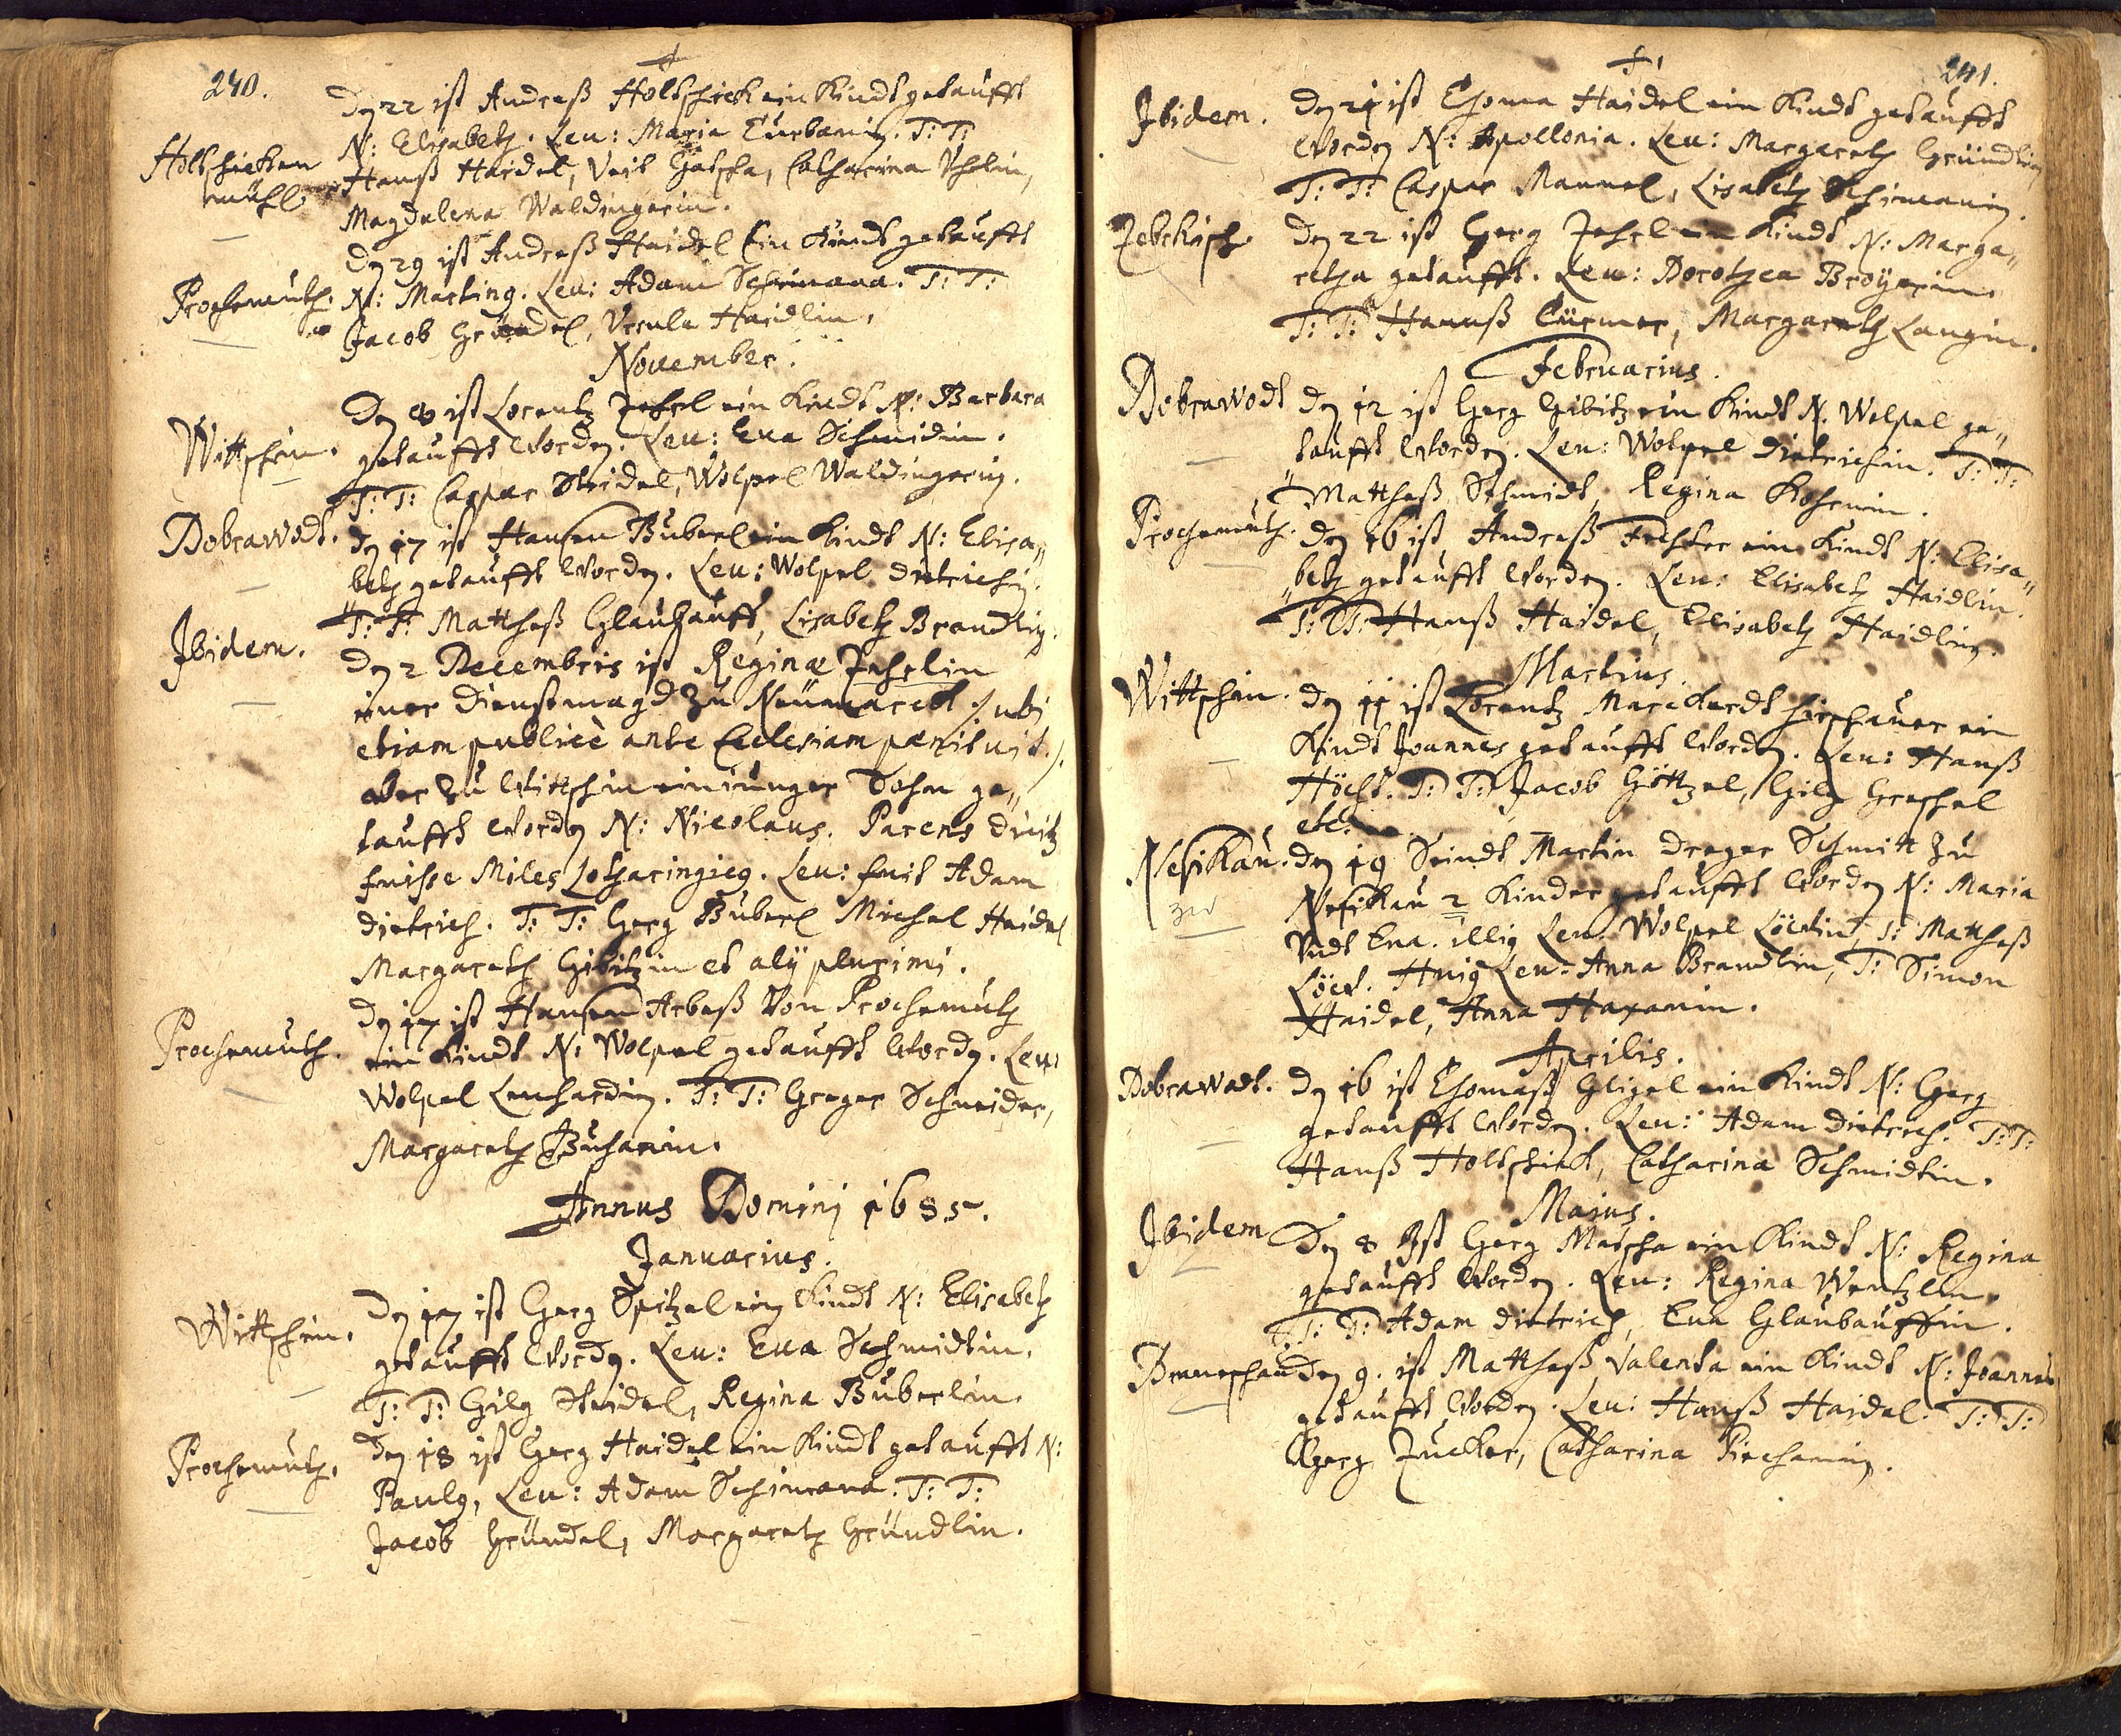 240.
Holtschicken
mühl
Den 22 ist Andreaß Holtschick ein Kindt getaufft
N: Elisabeth. Leu: Maria Turbanin. T: T:
Hanß Haidel, Veit Gatscha, Catharina
Magdalena Waldingerin.
Prochomuth.
Den 29 ist Andreaß Haidel Ein Kindt getaufft
N: Martinq. Leu: Adam Schimana. T: T:
Jacob Gründel, Vrsula Haidlin.
November.
Wittschin.
Den 8 ist Lorentz ein Kindt N: Barbara
getaufft worden. Leu: Eua Schmidin.
T: T: Caspar Steidel, Wolpel Waldingerin.
Dobrawodt.
Den 17 ist Hansen Buberl ein Kindt N: Elisa„
beth getaufft worden. Leu: Wolpel Dietrichin.
T: T: Mattheß Glaubauff, Lisabeth Brandlin.
Ibidem.
Den 2 Decembris ist Reginæ
einer Dienstmagd zu Neümarckt /: ubi
etiam publicè ante Ecclesiam pænituit :/
aber zu Wittschin ein iunger Sohn ge„
taufft worden N: Nicolaus. Parens
fuisse Miles Lotharingicq. Leu: fuit Adam
Dietrich. T: T: Gerg Buberl Michel Haidel
Margareth Gibitzin et alij plurimi.
Prochomuth.
Den 17 ist Hansen Arbeß Von Prochomuth
ein Kindt N: Wolpel getaufft worden. Leu:
Wolpel Lenhardin. T: T: Greger Schneider,
Margareth Buharin.
Annus Domini 1685.
Januarius.
Wittschin.
Den 17 ist Gerg Spitzel ein Kindt N: Elisabeth
getaufft worden. Leu: Eua Schmidtin.
T: T: Gilg Steidel, Regina Buberlin.
Prochomuth.
Den 18 ist Gerg Haidel ein Kindt getaufft N:
Paulq, Leu: Adam Schimana. T: T:
Jacob Gründel, Margareth Gründlin.
241.
Ibidem.
Den 21 ist Thoma Haidel ein Kindt getaufft
worden N: Apollonia. Leu: Margareth Gründlin
T: T: Caspar Mannel, Lisabeth Schimanin.
Den 22 ist Gerg ein Kindt N: Marga„
retha getaufft. Leu: Dorothea Broyerin.
T: T: Hanuß Türmer, Margareth Langin.
Februarius.
Dobrawodt
Den 12 ist Gerg Gibitz ein Kindt N. Wolpel ge„
taufft worden. Leu: Wolpel Dietrichin. T: T:
Mattheß Schmidt, Regina
Prochomuth.
Den 16 ist Andreaß ein Kindt N: Elisa„
beth getaufft worden. Leu: Elisabeth Haidlin.
T: T: Hanß Haidel, Elisabeth Haidlin.
Martius.
Wittschin.
Den 11 ist Lorentz Marckardt hirschauer ein
Kindt Joannes getaufft worden. Leu: Hanß
Höcht. T: T: Jacob Göttzel, Gilg Greschel
etc.
Nesikau.
Den 19 Seindt Martin Dreger Schmitt zu
Nesikau 2 Kinder getaufft worden N: Maria
Vndt Eua. illiq Leu: Wolpel Löewin, T: Mattheß
Löew. Huiq Leu: Anna Brandlin, T: Simon
Haidel, Anna Haxamin.
Aprilis.
Dobrawodt.
Den 16 ist Thomaß Gligel ein Kindt N: Gerg
getaufft worden. Leu: Adam Dietrich. T: T:
Hanß Holtschick, Catharina Schmidtin.
Maius.
Ibidem
Den 8 Ist Gerg Matscha ein Kindt N: Regina
getaufft worden. Leu: Regina Wentzlin.
T: T: Adam Dietrich, Eua Glaubauffin.
Den 9. ist Mattheß Valenta ein Kindt N: Joannes
getaufft worden. Leu: Hanß Haidel. T: T:
Gerg Zucker, Catharina